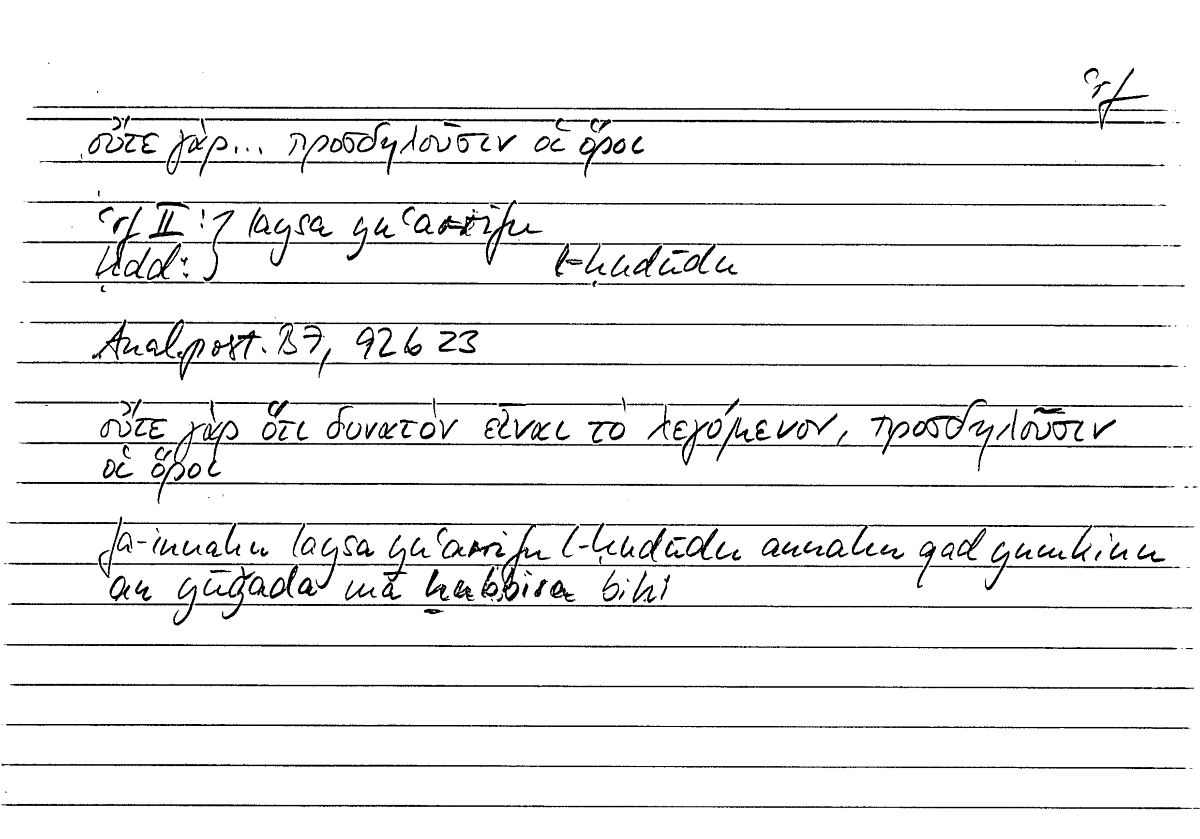 ʿrf
οὔτε γὰρ... προσδηλοῦσιν οἱ ὅροι
ʿrf II: } laysa yuʿarrifu
ḥdd: } l-ḥudūdu
Anal. post. B7, 92b 23
οὔτε γὰρ ὅτι δυνατὸν εἶναι τὸ λεγόμενον, προσδηλοῦσιν
οἱ ὅροι
fa-innahu laysa yuʿarrifu l-ḥudūdu annahu qad yumkinu
an yūǧada mā bihi